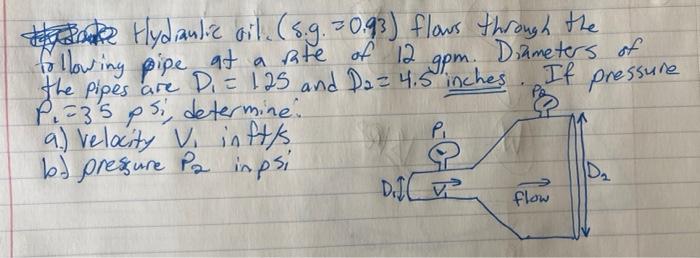 Hydraulic oil. (s.g. = 0.93) flows through the
following pipe at a rate of 12 gpm. Diameters of
the pipes are D₁ = 1.25 and D₂ = 4.5 inches. If pressure
P₁ = 35 psi, determine:
a.) velocity V₁ in ft/s
b.) pressure P₂ in psi
P₂
P₁
D₁
V₁
flow
D₂